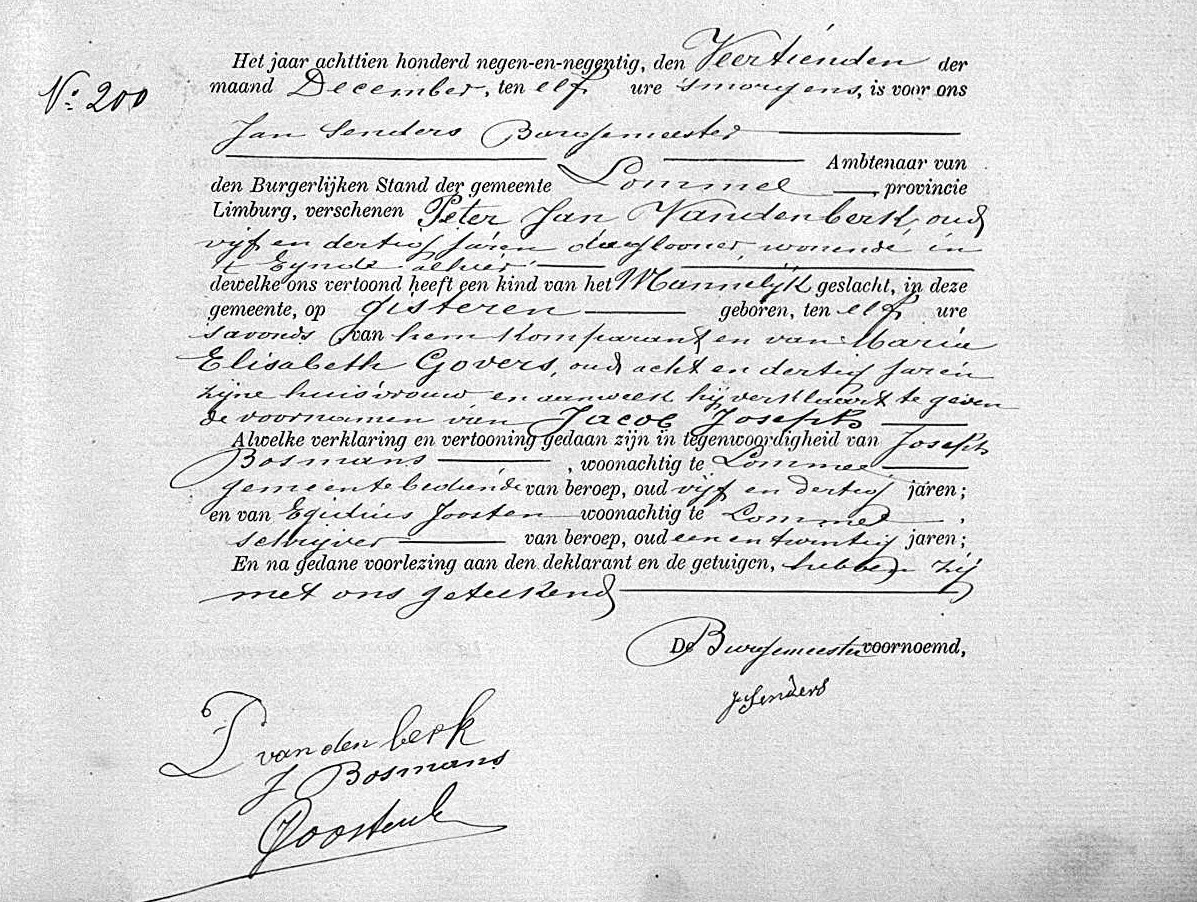 Nº 200
Het jaar achttien honderd negen-en-negentig, den Veertienden der
maand December, ten elf ure 'smorgens, is voor ons
Jan Senders Burgemeester
Ambtenaar van
den Burgerlijken Stand der gemeente Lommel provincie
Limburg, verschenen Peter Jan Vandenberk oud
vijf en dertig jaren daglooner, wonende in
't Eynde alhier
dewelke ons vertoond heeft een kind van het Mannelijk geslacht, in deze
gemeente, op gisteren geboren, ten elf ure
savonds van hem komparant en van Maria
Elisabeth Govers, oud acht en dertig jaren
zijne huisvrouw en aan welk hij verklaart te geven
de voornamen van Jacob Joseph
Alwelke verklaring en vertooning gedaan zijn in tegenwoordigheid van Joseph
Bosmans, woonachtig te Lommel
gemeentebediende van beroep, oud vijf en dertig jaren;
en van Egidius Joosten woonachtig te Lommel,
schrijver van beroep, oud een en twintig jaren;
En na gedane voorlezing aan den deklarant en de getuigen, hebben zij
met ons geteekend
De Burgemeester voornoemd,
J Senders
P vandenberk
J Bosmans